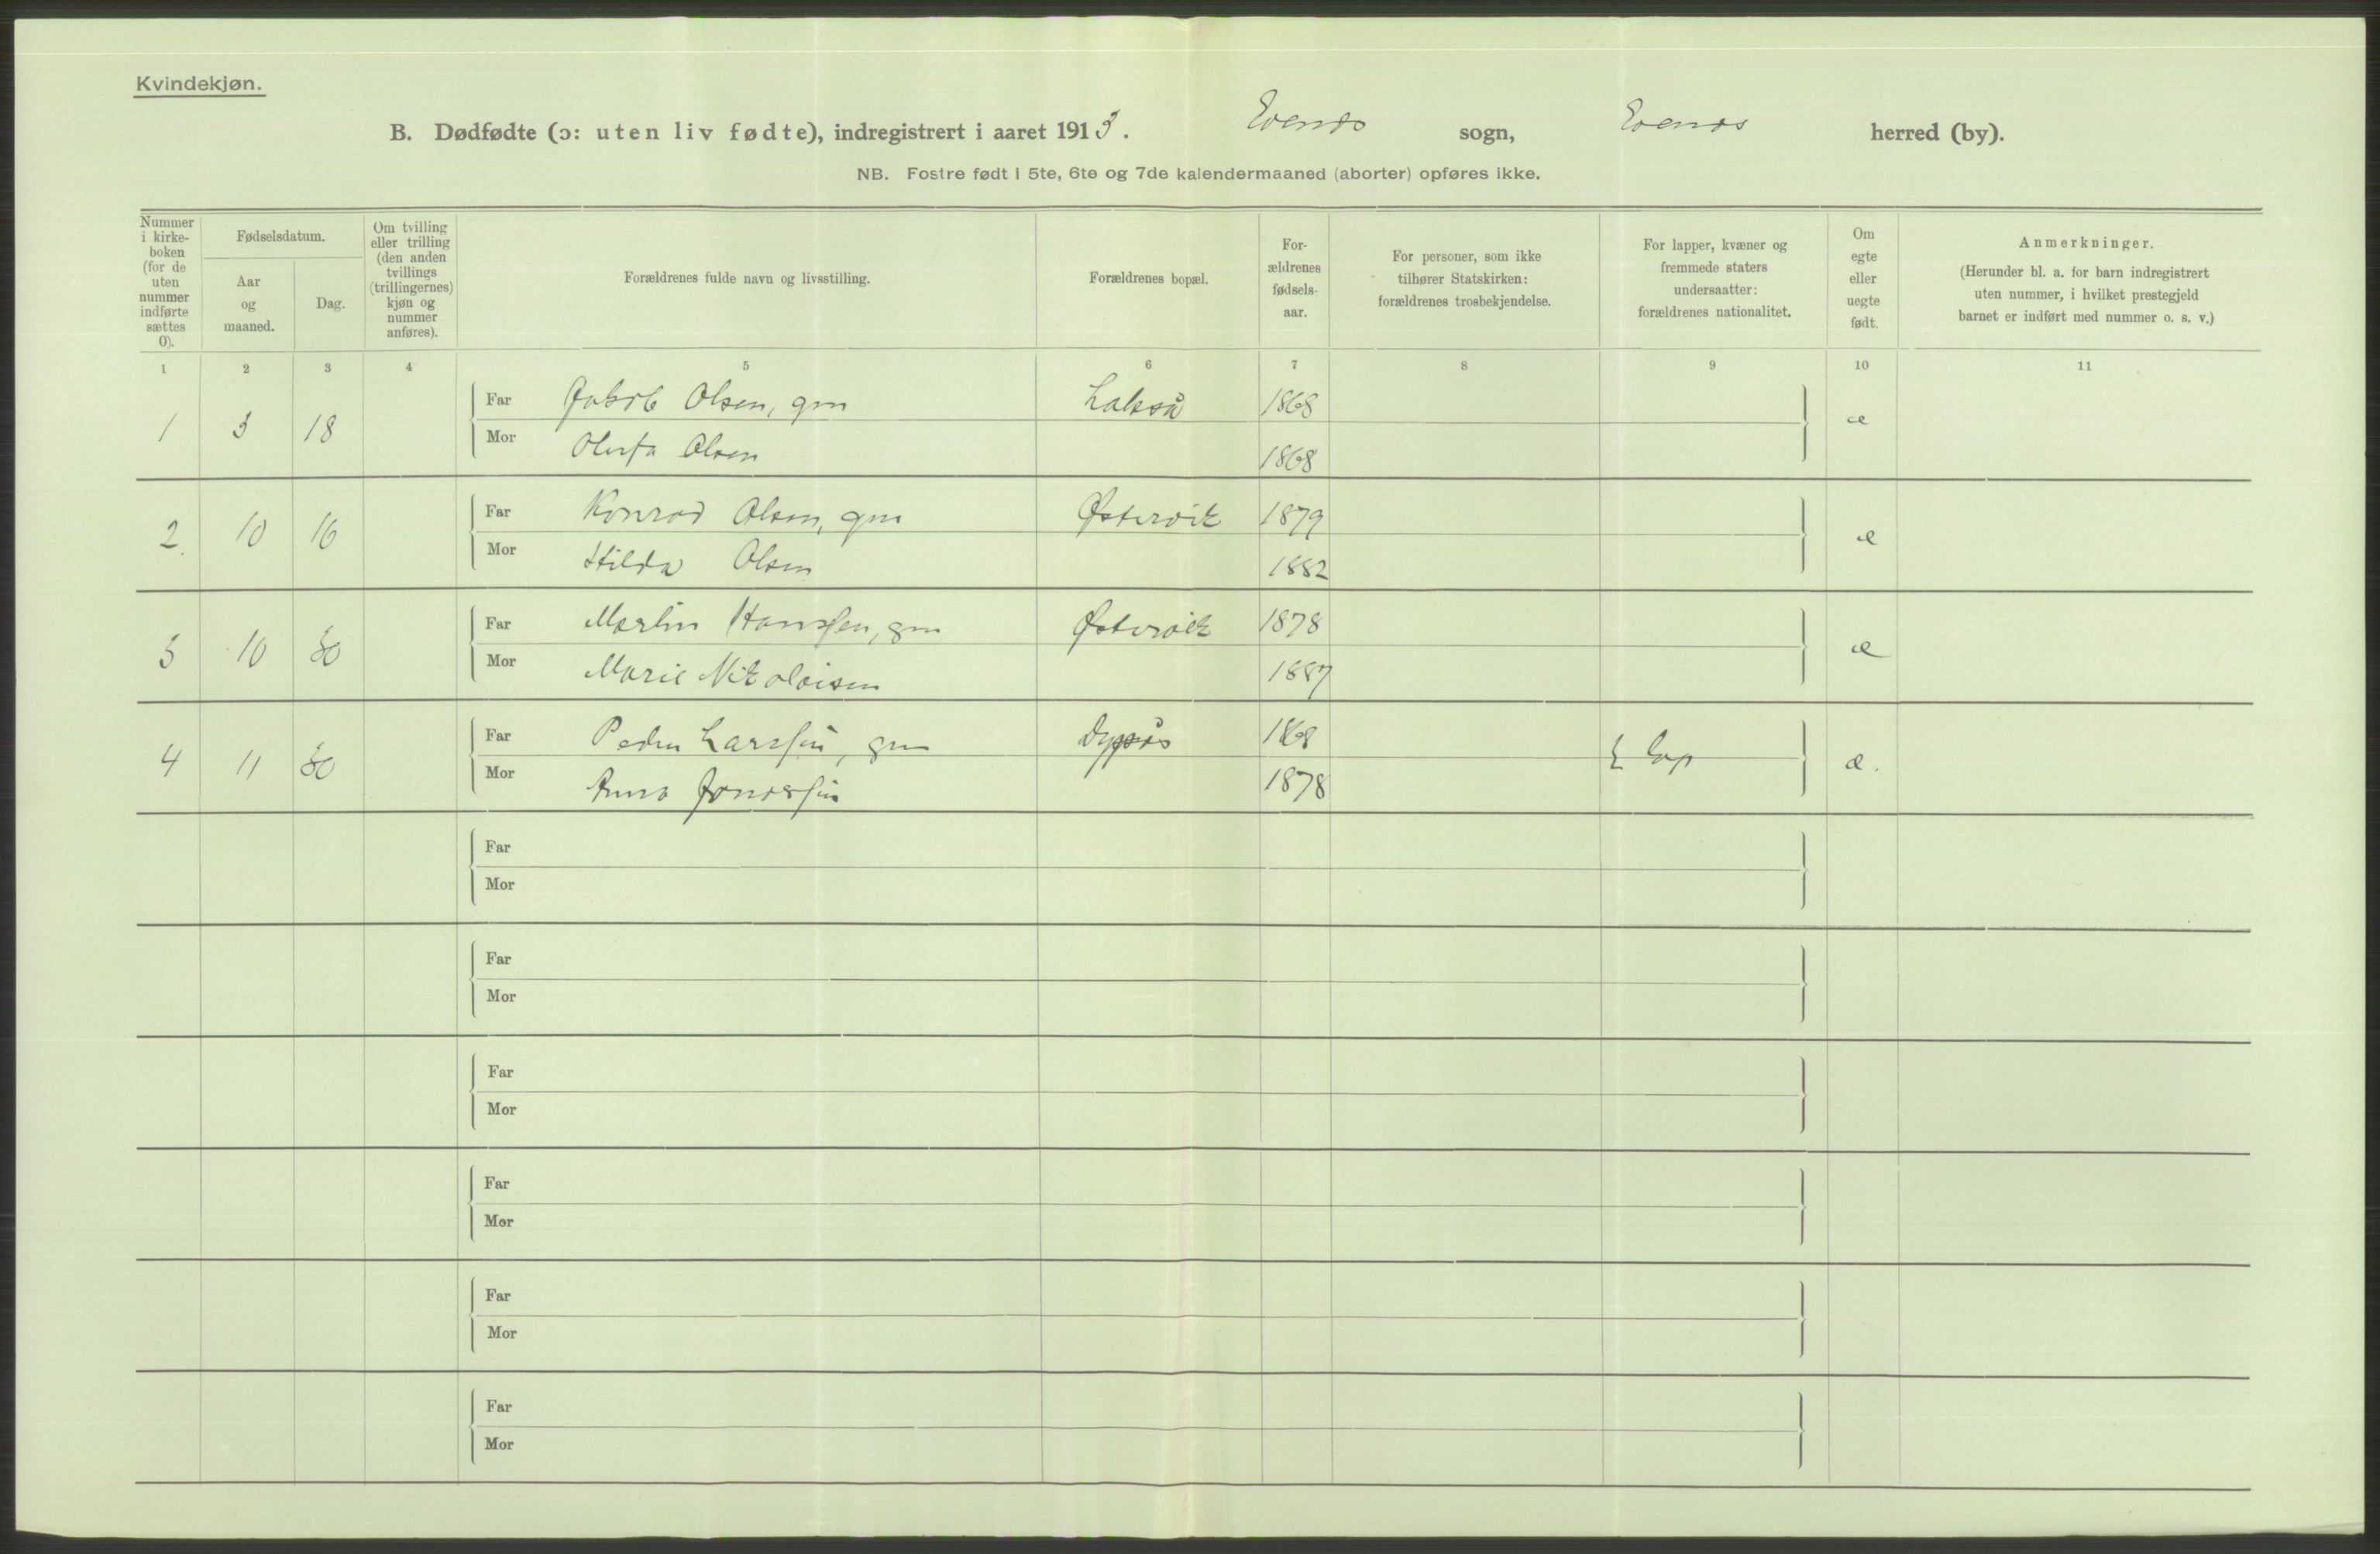 Kvindekjøn.
B. Dødfødte (ɔ: uten liv fødte), indregistrert i aaret 1913. Evenes sogn, Evenes herred (by).
NB. Fostre født i 5te, 6te og 7de kalendermaaned (aborter) opføres ikke.
Nummer i kirke- boken (for de uten nummer indførte sættes 0).
Fødselsdatum.
Aar og maaned.
Dag.
Om tvilling eller trilling (den anden tvillings (trillingernes) kjøn og nummer anføres).
Forældrenes fulde navn og livsstilling.
Forældrenes bopæl.
For- ældrenes fødsels- aar.
For personer, som ikke tilhører Statskirken: forældrenes trosbekjendelse.
For lapper, kvæner og fremmede staters undersaatter: forældrenes nationalitet.
Om egte eller uegte født.
Anmerkninger.
(Herunder bl. a. for barn indregistrert uten nummer, i hvilket prestegjeld barnet er indført med nummer o. s. v.)
1 2 3 4 5 6 7 8 9 10 11
1 3 18 Far Jakob Olsen, gm Lakså 1868 æ
Mor Olufa Olsen 1868
2 10 16 Far Konrad Olsen, gm Østervik 1879 æ
Mor Hilda Olsen 1882
3 10 30 Far Martin Hanssen, gm Østervik 1878 æ
Mor Marie Nikolaisen 1887
4 11 30 Far Peder Larssen, gm 1868 Lap æ.
Mor Anna Jonassen 1878
Far
Mor
Far
Mor
Far
Mor
Far
Mor
Far
Mor
Far
Mor